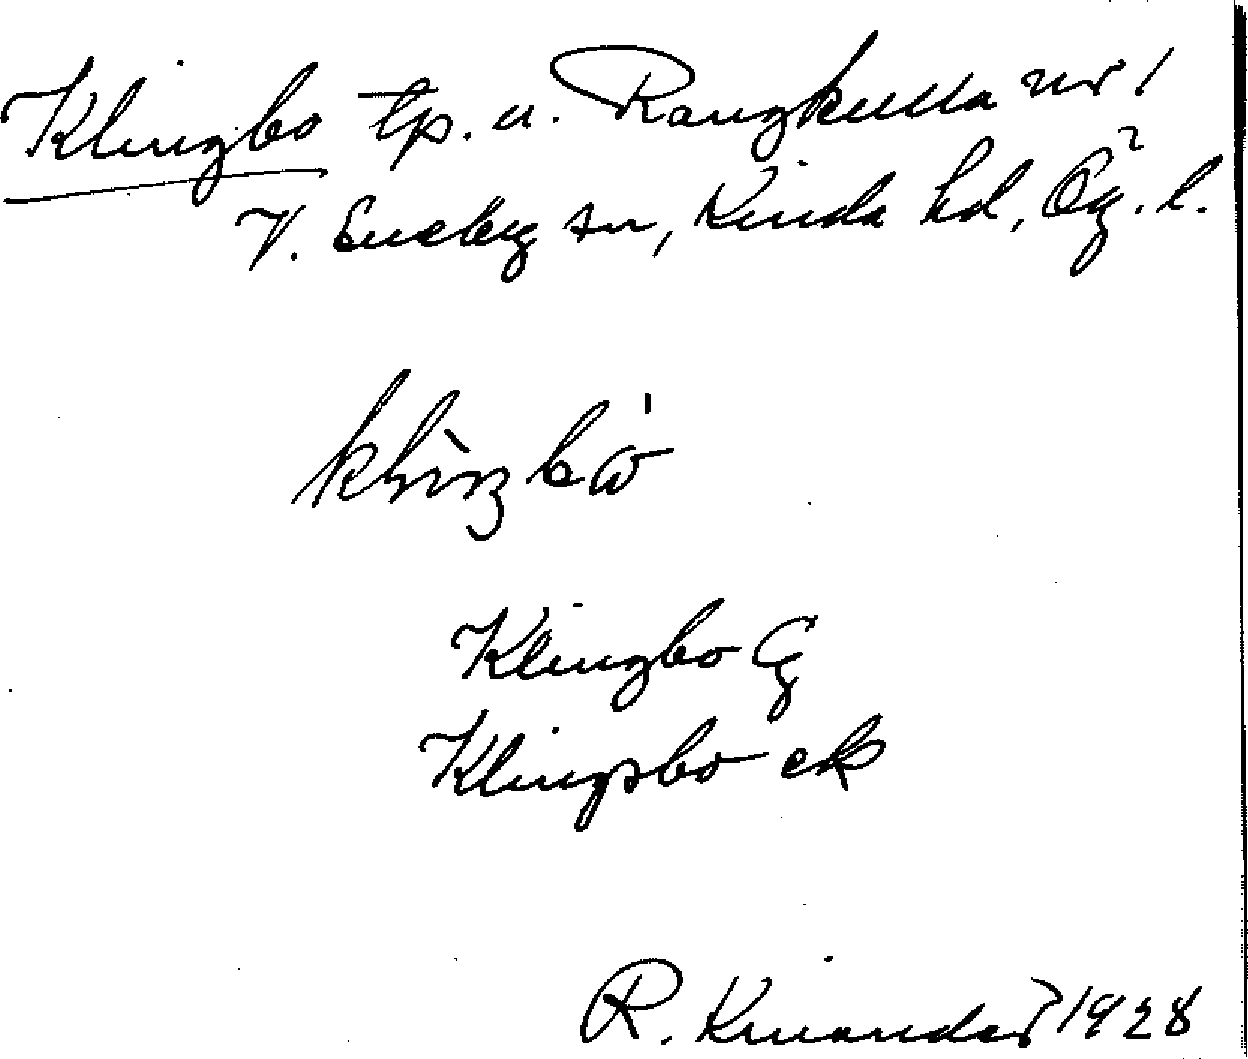 Klingbo tp. u. Rangkulla nr 1
V. Eneby sn, Kinda hd, Ög. l.
klìŋbω̍
Klingbo Cg
Klingsbo ek
R. Kinander 1928